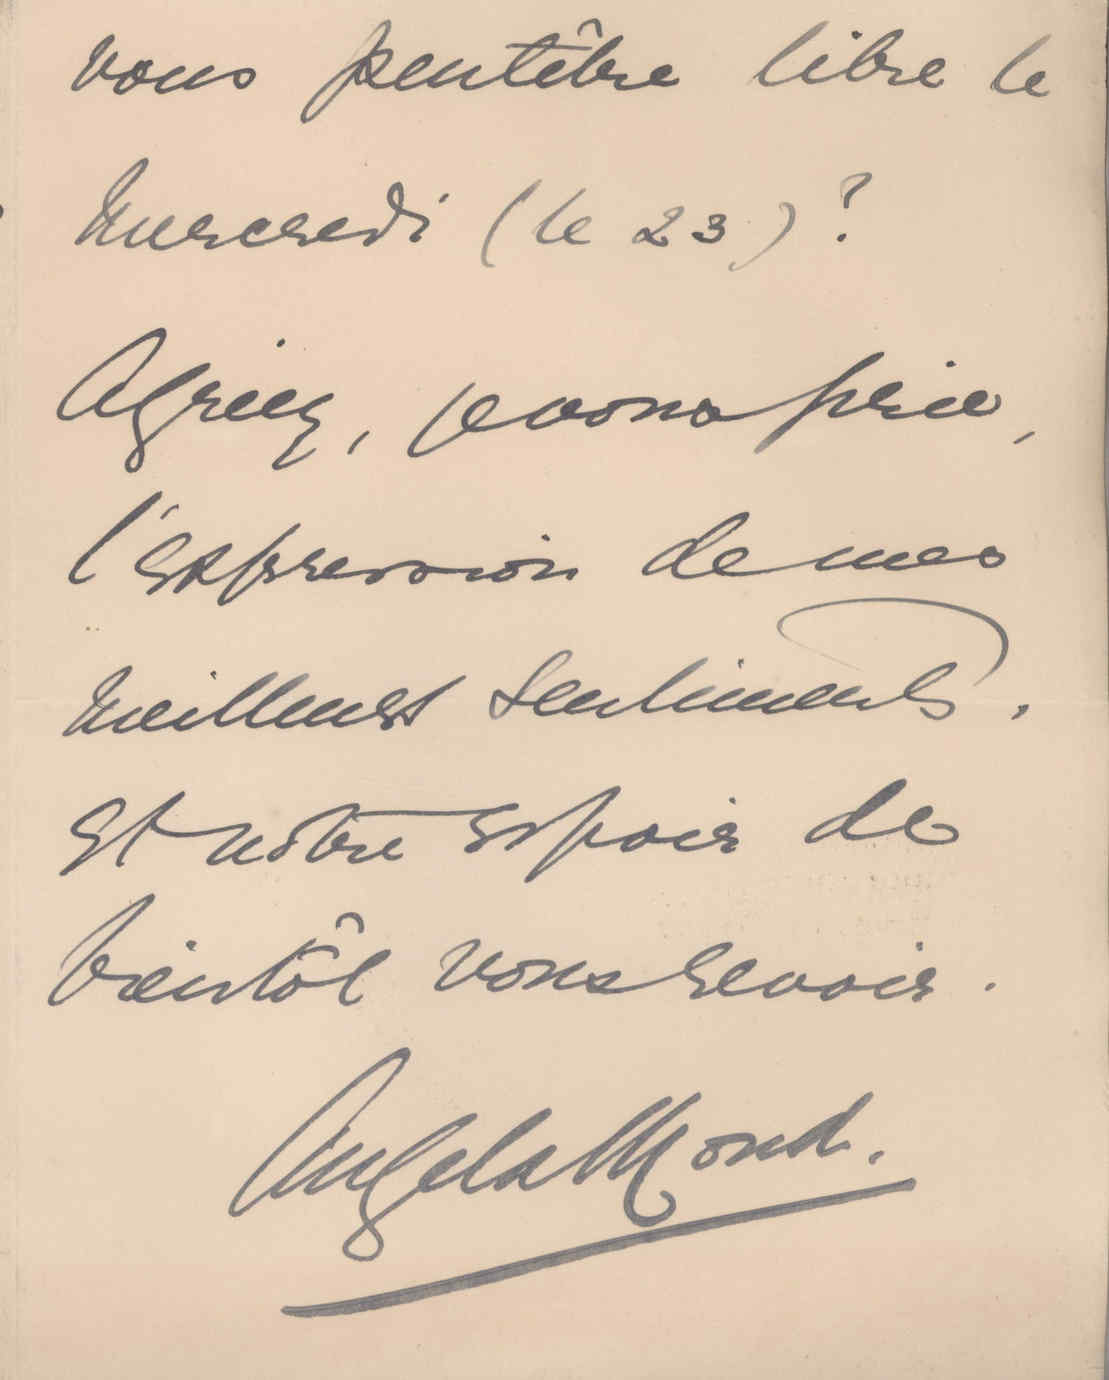 vous peutêtre libre le
Mercredi (le 23)?
Agréez, je vous prie,
l'expression de mes
meilleurs sentiments.
et notre espoir de
bientôt vous revoir.
Angela Mond.